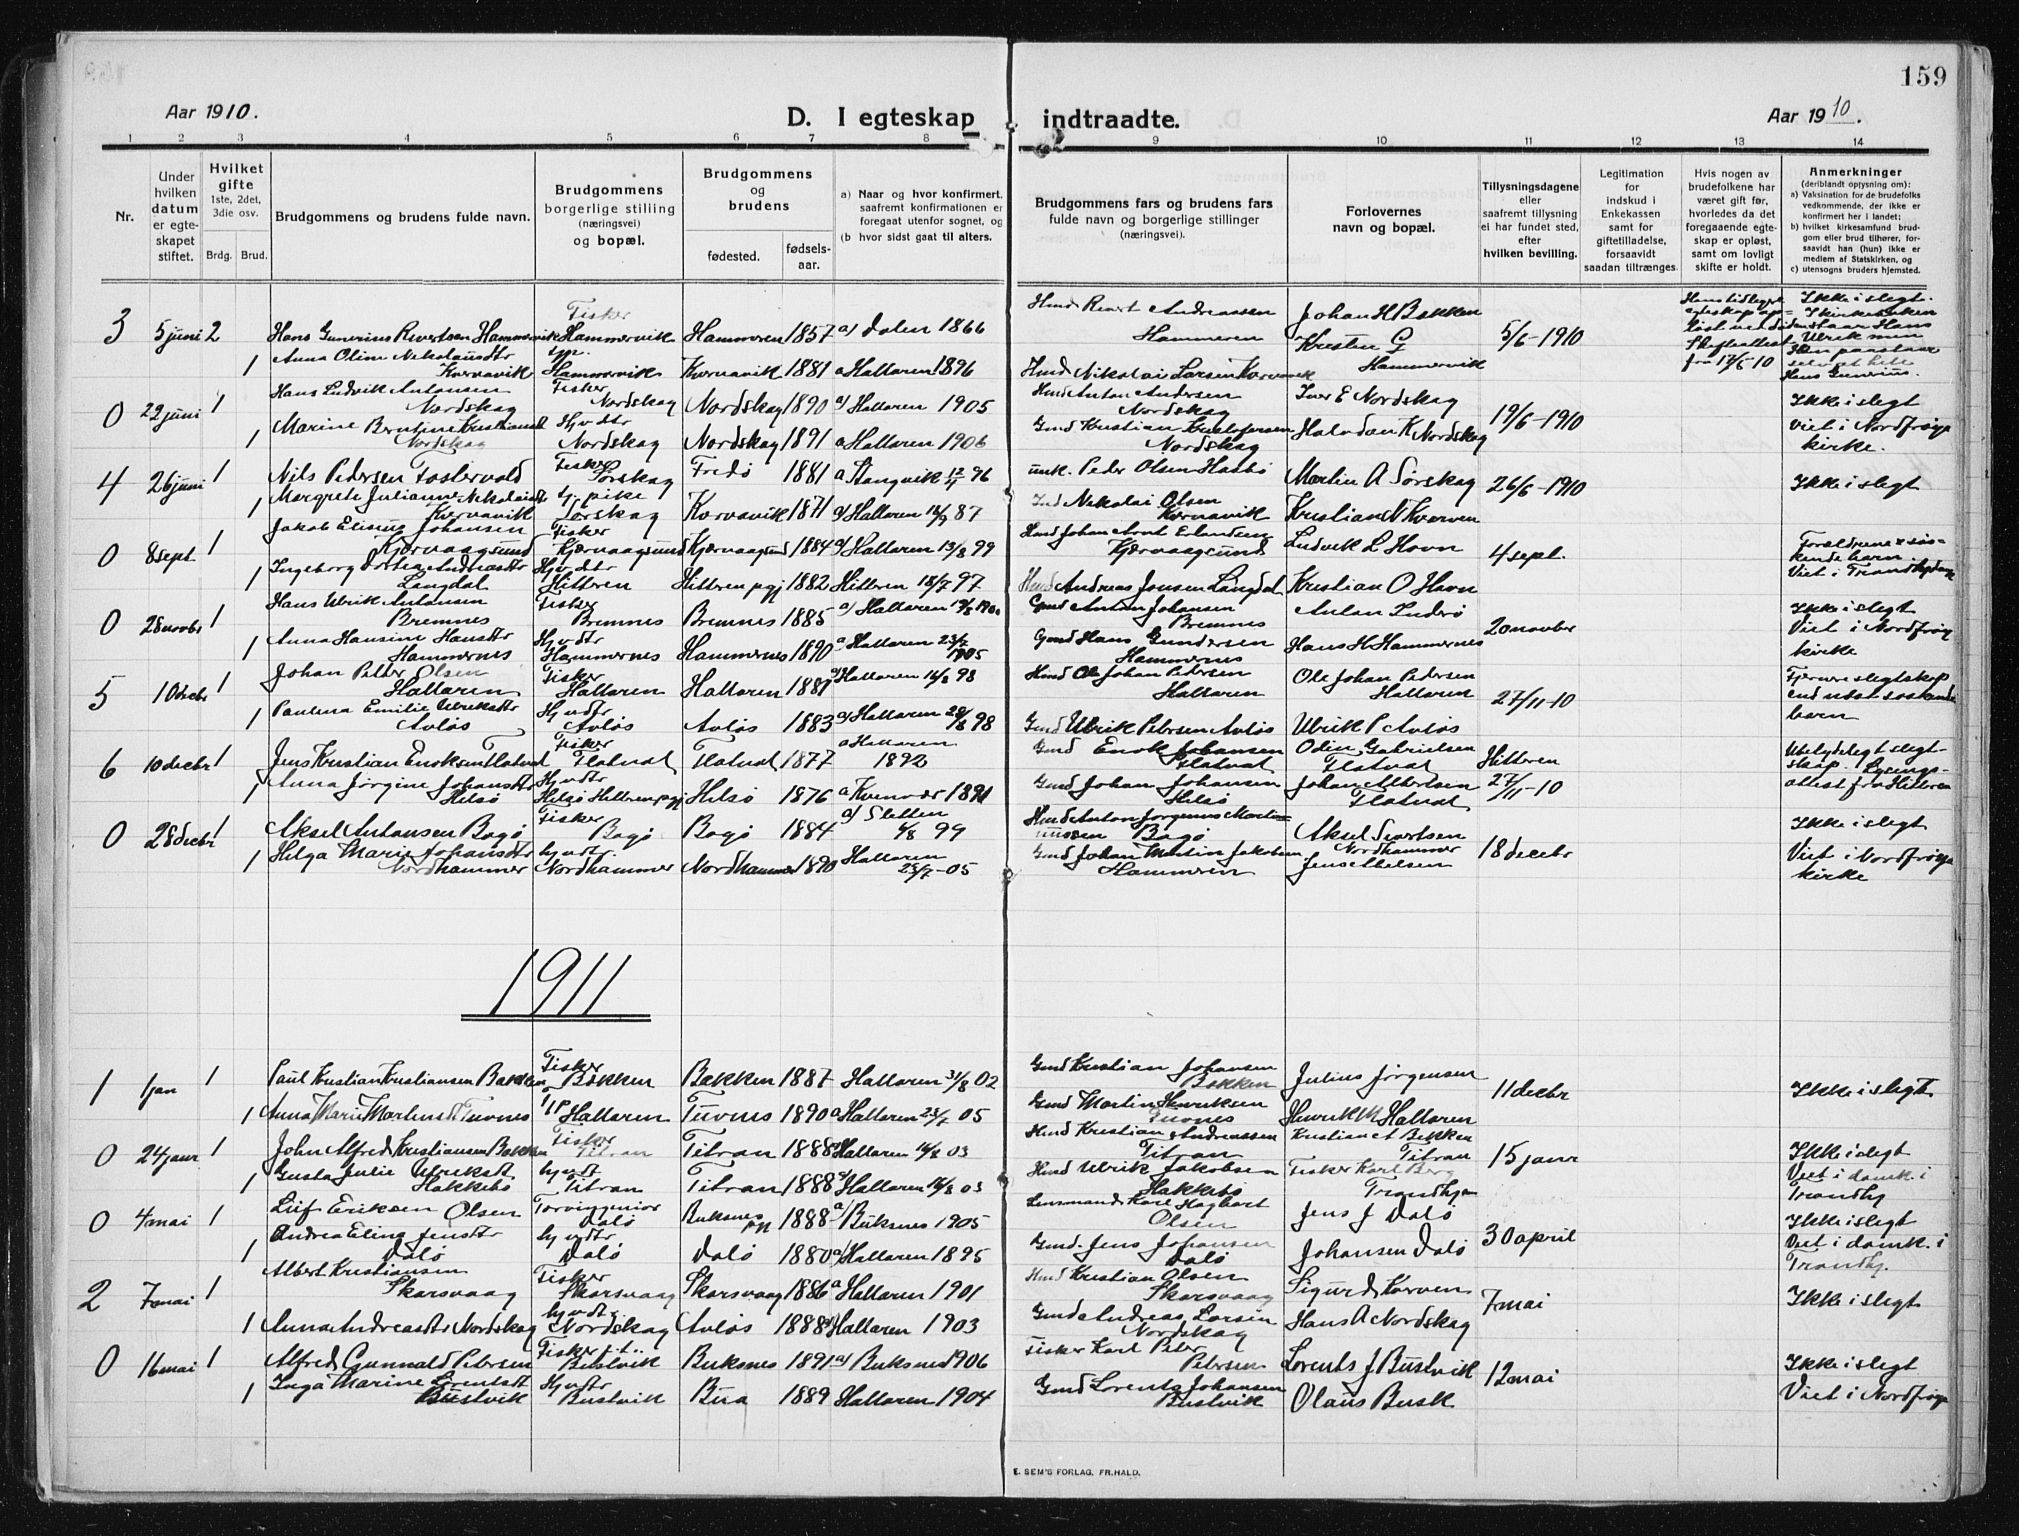 159
Aar 1910.
D. I egteskap indtraadte.
Aar 1910.
1 2 3 4 5 6 7 8 9 10 11 12 13 14
Nr.
Under hvilken datum er egteskapet stiftet.
Hvilket gifte 1ste, 2det, 3die osv.
Brdg. Brud.
Brudgommens og brudens fulde navn.
Brudgommens borgerlige stilling (næringsvei) og bopæl.
Brudgommens og brudens
fødested.
fødselsaar.
a) Naar og hvor konfirmert, saafremt konfirmationen er foregaat utenfor sognet, og
(b hvor sidst gaat til alters.
Brudgommens fars og brudens fars fulde navn og borgerlige stillinger (næringsvei).
Forlovernes navn og bopæl.
Tillysningsdagene eller saafremt tillysning ei har fundet sted, efter hvilken bevilling.
Legitimation for indskud i Enkekassen samt for giftetilladelse, forsaavidt saadan tiltrænges.
Hvis nogen av brudefolkene har været gift før, hvorledes da det foregaaende egteskap er opløst, samt om lovligt skifte er holdt.
Anmerkninger (deriblandt opysning om):
a) Vaksination for de brudefolks vedkommende, der ikke er konfirmert her i landet;
b) hvilket kirkesamfund brudgom eller brud tilhører, forsaavidt han (hun) ikke er medlem af Statskirken, og
c) utensogns bruders hjemsted.
3 5 juni 2 Hans Gunerius Revertsen Hammervik Fisker Hammervik Hammeren 1857 a) Dalen 1866 Hmd Revert Andreassen Hammeren Johan H Bakken 5/6-1910 Ikke i slegt.
1 Anna Oline Nikolausdtr Kvernavik Hammervik Kvernavik 1881 a Hallaren 1896 Hmd Nikolai Larsen Kvernavik Kristen G Hammervik
0 29 juni 1 Hans Ludvik Antonsen Nordskag Fisker Nordskag Nordskag 1890 a) Hallaren 1905 Hmd Anton Andersen Nordskag Iver E Nordskag 19/6-1910 Ikke i slegt
1 Marine Bentine Kristiansdt Nordskag Hjvdtr Nordskag Nordskag 1891 a Hallaren 1906 Gmd Kristian Kristofersen Nordskag Halvdan K Nordskag Viet i Nordfrøya kirke.
4 26 juni 1 Nils Pedersen Fostervold Fisker Sørskag Fredø 1881 a Stangvik 96 Peder Olsen Martin A Sørskag 26/6-1910 Ikke i slegt
1 Margrete Julianne Nikolaidtr Kvernavik tj. pike Sørskag Kvernavik 1871 a) Hallaren 87 Nikolai Olsen Kvernavik Kristian N Kverven
0 8 sept 1 Jakob Elising Johansen Kjervaagsund Fisker Kjervaagsund Kjervaagsund 1884 a) Hallaren 13/8 99 Hmd Johan Arnt Erlandsen Kjervaagsund Ludvik L Havn 4 sept. Forældrene søskende barn.
1 Ingeborg Dortea Andreasdtr Langdal Hjvdtr Hitteren Hitteren pgj 1882 Hitteren 18/7 97 Hmd Andreas Jonsen Langdal Kristian O Havn Viet i Trondhjem
0 28 novbr 1 Hans Ulrik Antonsen Bremnes Fisker Bremnes Bremnes 1885 a) Hallaren Gmd Anton Johansen Bremnes Anton Ludvø 20 novber Ikke i slegt
1 Anna Hansine Hansdtr Hammernes Hjvdtr Hammernes Hammernes 1890 a Hallaren 23/7 1905 Gmd Hans Gundersen Hammernes Hans H Hammernes Viet i Nordfrøya kirke
5 1 decbr 1 Johan Peter Olsen Hallaren Fisker Hallaren Hallaren 1881 a) Hallaren 14/8 98 Hmd Ole Johan Pedersen Hallaren Ole Johan Pedersen Hallaren 27/11-10 Fjernere slegtskap end næstsøskendebarn
1 Paulina Emilie Ulriksdtr Avløs Hjvdtr Avløs Avløs 1883 a) Hallaren 28/8 98 Gmd Ulrik Petersen Avløs Ulrik P Avløs
6 10 decbr 1 Jens Kristian Enoksen Flatval Fisker Flatval Flatval 1877 a Hallaren 1892 Gmd Enok Johansen Flatval Odin Gabrielsen Flatval Hitteren 27/11-10 Ubetydeligt slegtskap. Lysingsattest fra Hitteren
1 Anna Jørgine Johansdtr Helsø Hjvdtr Helsø Hitteren pgj Helsø 1876 a Kvenvær 1891 Gmd Johan Johansen Helsø Johan Albertsen Flatval
0 28 decbr 1 Aksel Antonsen Bogø Fisker Bogø Bogø 1884 a) Sletten 99 Hmd Anton Jørginus Martinussen Bogø Aksel Sivertsen Nordhammer 18 decbr Ikke i slegt
1 Helga Marie Johansdtr Nordhammer hjvdtr. Nordhammer Nordhammer 1890 Hallaren 23/7-05 Gmd Johan Martin Jakobsen Hammeren Jens Nielsen Viet i Nordfrøya kirke
1911
1 1 jan 1 Paul Kristian Kristiansen Bakken Fisker Bakken Bakken 1887 Hallaren 31/8 02 Gmd Kristian Johansen Bakken Julius Jørgensen 11 decbr Ikke i slegt
1 Anna Marie Martinsdt Tuvnes Hallaren Tuvnes 1890 a Hallaren 23/7 05 Gmd Martin Henriksen Tuvnes Henrik M Hallaren
0 24 janr 1 John Alfred Kristiansen Bakken Fisker Titran Titran 1888 Hallaren 16/8 03 Hmd Kristian Andreassen Titran Kristian A Bekken Titran 15 janr Ikke i slegt
1 Gusta Julie Ulriksdt Hakkebø hjvdt Titran Titran 1888 a) Hallaren 16/8 03 Hmd Ulrik Jakobsen Hakkebø Fisker Karl Berg Trondhjem Viet i domk. i Trondhj
0 4 mai 1 Leif Eriksen Olsen Dalø Buksnes pgj 1888 a) Buksnes 1905 Lensmand Karl Hagbart Olsen Jens J Dalø 30 april Ikke i slegt
1 Andrea Elina Jensdtr Dalø hjvdtr Dalø Dalø 1880 a) Hallaren 1895 Gmd. Jens Johansen Dalø Johansen Dalø Viet i domk. i Trondhj.
2 7 mai 1 Albert Kristiansen Skarsvaag Fisker Skarsvaag Skarsvaag 1886 a Hallaren 1901 Hmd Kristian Olsen Skarsvaag Sigurd Korven 7 mai Ikke i slegt
1 Anna Andreasdtr Nordskag hjvdt. Nordskag Avløs 1888 a) Hallaren 1903 Gmd Andreas Larsen Nordskag Hans A Nordskag
0 16 mai 1 Alfred Gunnald Petersen Fisker Bustvik Buksnes 1891 a) Buksnes 1906 Fisker Karl Peter Petersen Lorents J Bustvik 12 mai Ikke i slegt
1 Inga Marine Lorentsdt Bustvik Hjvdtr Bustvik Bua 1889 Hallaren 1904 Gmd Lorents Johansen Bustvik Olaus Busk Viet i Nordfrøya
E. SEM'S FORLAG, FR.HALD.